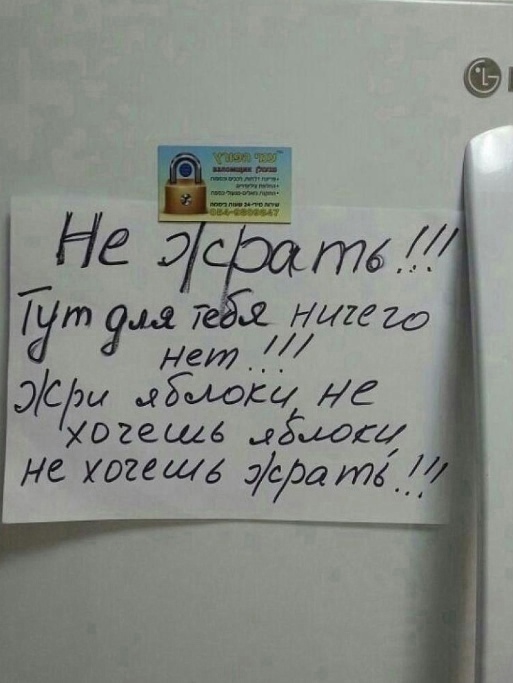 LG
взломщик
054-9809647
Не жрать!!!
Тут для тебя ничего
нет!!!
Жри яблоки, не
хочешь яблоки,
не хочешь жрать!!!